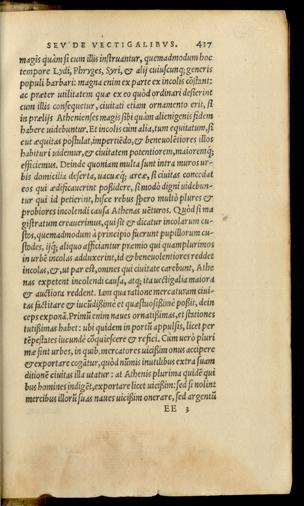 SEV DE VECTIGALIBVS. 437
magis quàm si cum illis instruantur, quemadmodum hoc
tempore Lydi, Phryges, Syri, & alij cuiuscunq; generis
populi barbari: magna enim ex parte ex incolis cōstant:
ac præter utilitatem quæ ex eo quòd ordinari desierint
cum illis consequetur, ciuitati etiam ornamento erit, si
in prælijs Athenienses magis sibi quàm alienigenis fidem
habere uidebuntur. Et incolis cùm alia, tum equitatum, si
cut æquitas postulat, impertiēdo, & beneuolētiores illos
habituri uidemur, & ciuitatem potentiorem, maioremq;
efficiemus. Deinde quoniam multa sunt intra muros ur-
bis domicilia deserta, uacuæq; areæ, si ciuitas concedat
eos qui ædificauerint possidere, si modò digni uidebun-
tur qui id petierint, hisce rebus spero multò plures &
probiores incolendi causa Athenas uēturos. Quòd si ma
gistratum creauerimus, qui sit & dicatur incolarum cu-
stos, quemadmodum à principio fuerunt pupillorum cu-
stodes, ijsq; aliquo afficiantur præmio qui quamplurimos
in urbē incolas adduxerint, id & beneuolentiores reddet
incolas, &, ut par est, omnes qui ciuitate carebunt, Athe
nas expetent incolendi causa, atq; ita uectigalia maiora
& auctiora reddent. Iam qua ratione mercaturam ciui-
tas factitare & iucūdißimè et quæstuosißimè poßit, dein
ceps exponā. Primū enim naues ornatißimas, et stationes
tutißimas habet: ubi quidem in portū appulsis, licet per
tēpestates iucundè cōquiescere & refici. Cum uerò pluri
mæ sint urbes, in quib. mercatores uicißim onus accipere
& exportare cogātur, quòd nūmis inutilibus extra suam
ditionē ciuitas illa utatur: at Athenis plurima quidē qui
bus homines indigēt, exportare licet uicißim: sed si nolint
mercibus illorū suas naues uicißim onerare, sed argentū
EE 3